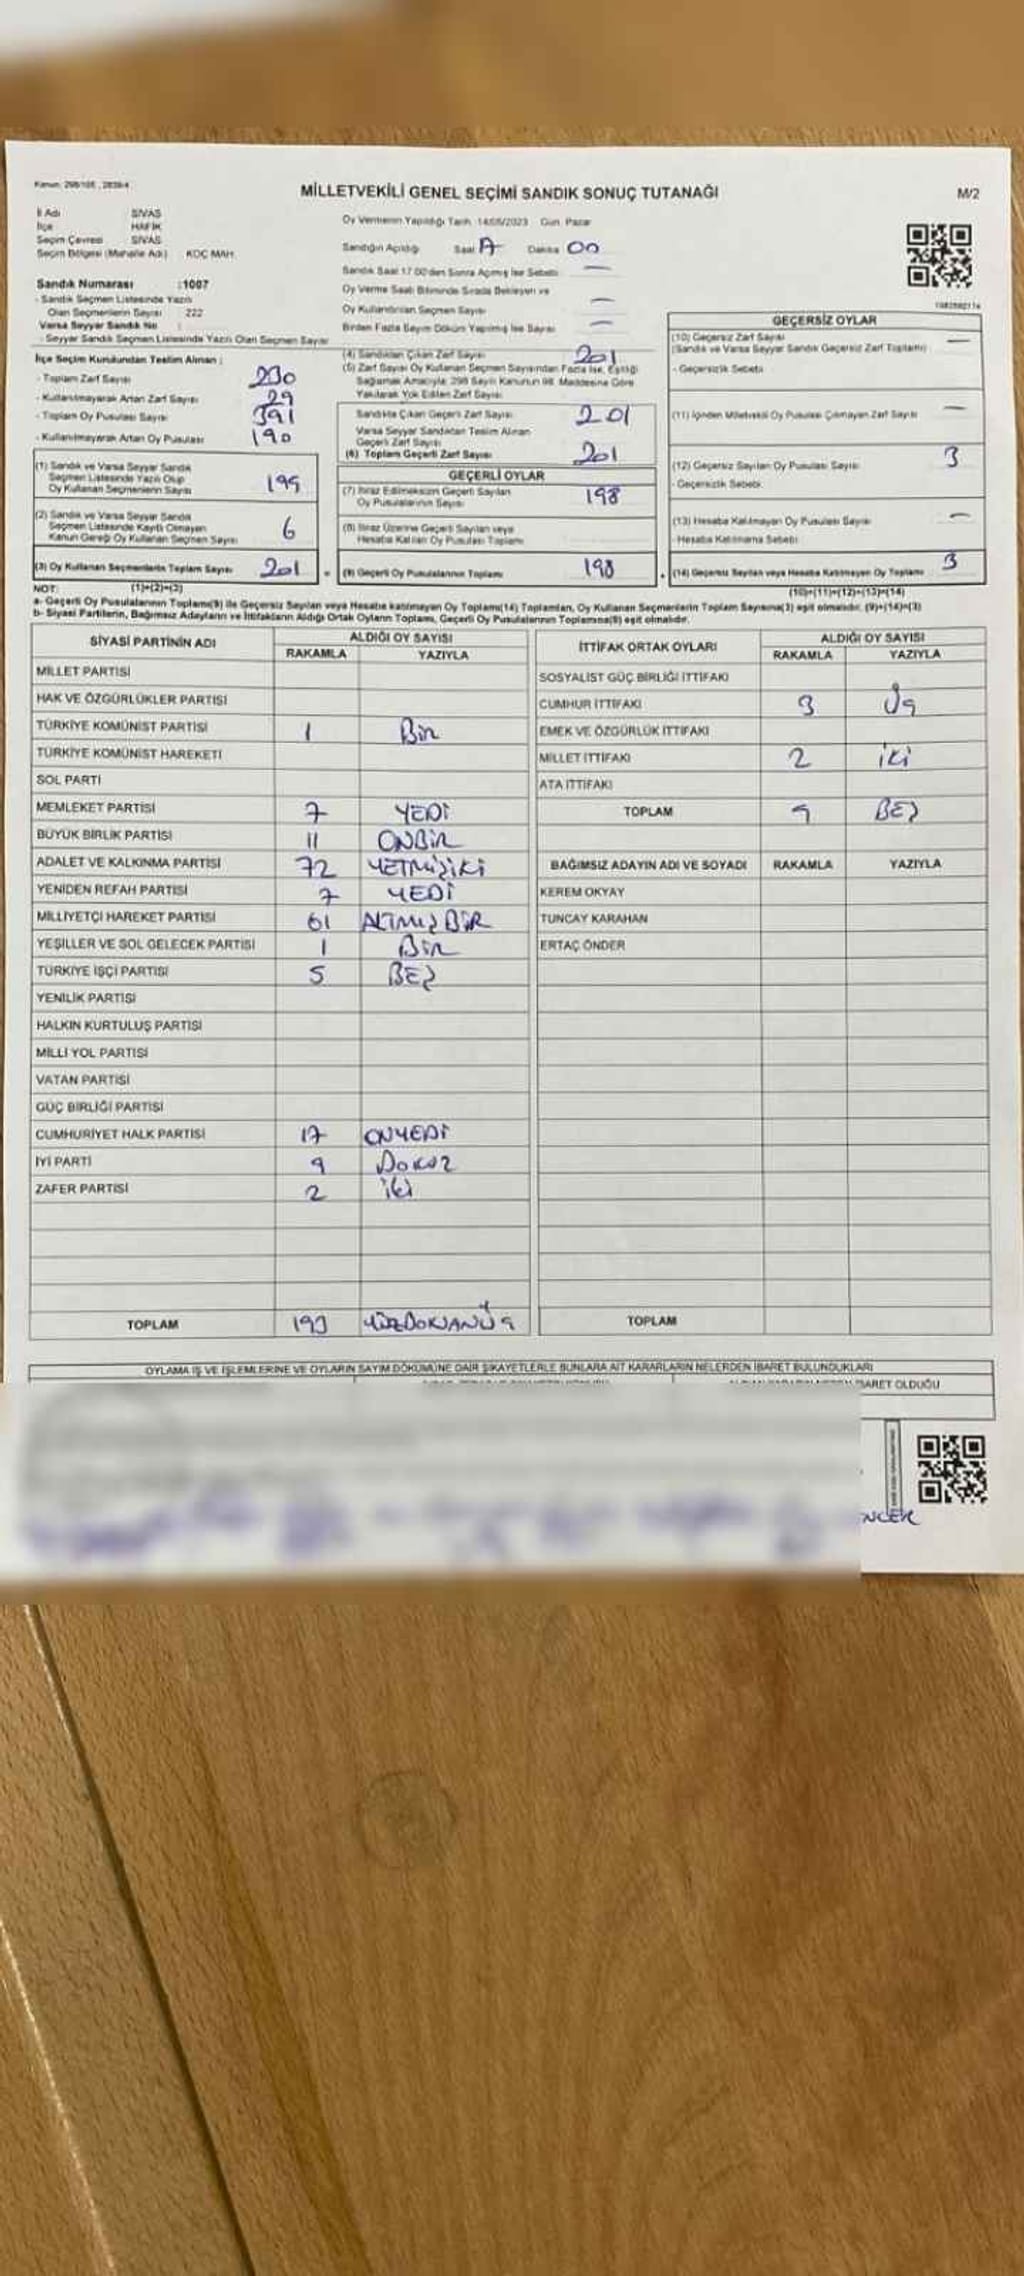 Kanun: 298/105 , 2839/4
MİLLETVEKİLİ GENEL SEÇİMİ SANDIK SONUÇ TUTANAĞI
M/2
İl Adı SİVAS
İlçe HAFİK
Seçim Çevresi SİVAS
Seçim Bölgesi (Mahalle Adı) : KOÇ MAH.
Sandık Numarası :1007
- Sandık Seçmen Listesinde Yazılı
Olan Seçmenlerin Sayısı 222
Varsa Seyyar Sandık No :
- Seyyar Sandık Seçmen Listesinde Yazılı Olan Seçmen Sayısı
İlçe Seçim Kurulundan Teslim Alınan :
- Toplam Zarf Sayısı 230
- Kullanılmayarak Artan Zarf Sayısı 29
- Toplam Oy Pusulası Sayısı 391
- Kullanılmayarak Artan Oy Pusulası 190
(1) Sandık ve Varsa Seyyar Sandık
Seçmen Listesinde Yazılı Olup
Oy Kullanan Seçmenlerin Sayısı 195
(2) Sandık ve Varsa Seyyar Sandık
Seçmen Listesinde Kayıtlı Olmayan
Kanun Gereği Oy Kullanan Seçmen Sayısı 6
(3) Oy Kullanan Seçmenlerin Toplam Sayısı 201
Oy Vermenin Yapıldığı Tarih 14/05/2023 Gün Pazar
Sandığın Açıldığı Saat 17 Dakika 00
Sandık Saat 17.00'den Sonra Açılmış İse Sebebi —
Oy Verme Saati Bitiminde Sırada Bekleyen ve
Oy Kullandırılan Seçmen Sayısı —
Birden Fazla Sayım Döküm Yapılmış İse Sayısı —
(4) Sandıktan Çıkan Zarf Sayısı 201
(5) Zarf Sayısı Oy Kullanan Seçmen Sayısından Fazla İse, Eşitliği
Sağlamak Amacıyla 298 Sayılı Kanunun 98. Maddesine Göre
Yakılarak Yok Edilen Zarf Sayısı
Sandıkta Çıkan Geçerli Zarf Sayısı 201
Varsa Seyyar Sandıktan Teslim Alınan
Geçerli Zarf Sayısı
(6) Toplam Geçerli Zarf Sayısı 201
GEÇERLİ OYLAR
(7) İtiraz Edilmeksizin Geçerli Sayılan
Oy Pusulalarının Sayısı 198
(8) İtiraz Üzerine Geçerli Sayılan veya
Hesaba Katılan Oy Pusulası Toplamı
= (9) Geçerli Oy Pusulalarının Toplamı 198
GEÇERSİZ OYLAR
(10) Geçersiz Zarf Sayısı —
(Sandık ve Varsa Seyyar Sandık Geçersiz Zarf Toplamı)
- Geçersizlik Sebebi
(11) İçinden Milletvekili Oy Pusulası Çıkmayan Zarf Sayısı —
(12) Geçersiz Sayılan Oy Pusulası Sayısı 3
- Geçersizlik Sebebi
(13) Hesaba Katılmayan Oy Pusulası Sayısı —
- Hesaba Katılmama Sebebi
+ (14) Geçersiz Sayılan veya Hesaba Katılmayan Oy Toplamı 3
NOT: (1)+(2)=(3) (10)+(11)+(12)+(13)=(14)
a- Geçerli Oy Pusulalarının Toplamı(9) ile Geçersiz Sayılan veya Hesaba katılmayan Oy Toplamı(14) Toplamları, Oy Kullanan Seçmenlerin Toplam Sayısına(3) eşit olmalıdır. (9)+(14)=(3)
b- Siyasi Partilerin, Bağımsız Adayların ve İttifakların Aldığı Ortak Oyların Toplamı, Geçerli Oy Pusulalarının Toplamına(9) eşit olmalıdır.
SİYASİ PARTİNİN ADI ALDIĞI OY SAYISI
RAKAMLA YAZIYLA
MİLLET PARTİSİ
HAK VE ÖZGÜRLÜKLER PARTİSİ
TÜRKİYE KOMÜNİST PARTİSİ 1 Bir
TÜRKİYE KOMÜNİST HAREKETİ
SOL PARTİ
MEMLEKET PARTİSİ 7 YEDİ
BÜYÜK BİRLİK PARTİSİ 11 ONBİR
ADALET VE KALKINMA PARTİSİ 72 YETMİŞİKİ
YENİDEN REFAH PARTİSİ 7 YEDİ
MİLLİYETÇİ HAREKET PARTİSİ 61 ALTMIŞBİR
YEŞİLLER VE SOL GELECEK PARTİSİ 1 Bir
TÜRKİYE İŞÇİ PARTİSİ 5 BEŞ
YENİLİK PARTİSİ
HALKIN KURTULUŞ PARTİSİ
MİLLİ YOL PARTİSİ
VATAN PARTİSİ
GÜÇ BİRLİĞİ PARTİSİ
CUMHURİYET HALK PARTİSİ 17 ONYEDİ
İYİ PARTİ 9 Dokuz
ZAFER PARTİSİ 2 iki
TOPLAM 193 YÜZDOKSANÜÇ
İTTİFAK ORTAK OYLARI ALDIĞI OY SAYISI
RAKAMLA YAZIYLA
SOSYALİST GÜÇ BİRLİĞİ İTTİFAKI
CUMHUR İTTİFAKI 3 Üç
EMEK VE ÖZGÜRLÜK İTTİFAKI
MİLLET İTTİFAKI 2 iki
ATA İTTİFAKI
TOPLAM 5 BEŞ
BAĞIMSIZ ADAYIN ADI VE SOYADI RAKAMLA YAZIYLA
KEREM OKYAY
TUNCAY KARAHAN
ERTAÇ ÖNDER
TOPLAM
OYLAMA İŞ VE İŞLEMLERİNE VE OYLARIN SAYIM DÖKÜMÜNE DAİR ŞİKAYETLERLE BUNLARA AİT KARARLARIN NELERDEN İBARET BULUNDUKLARI
OLDUĞU